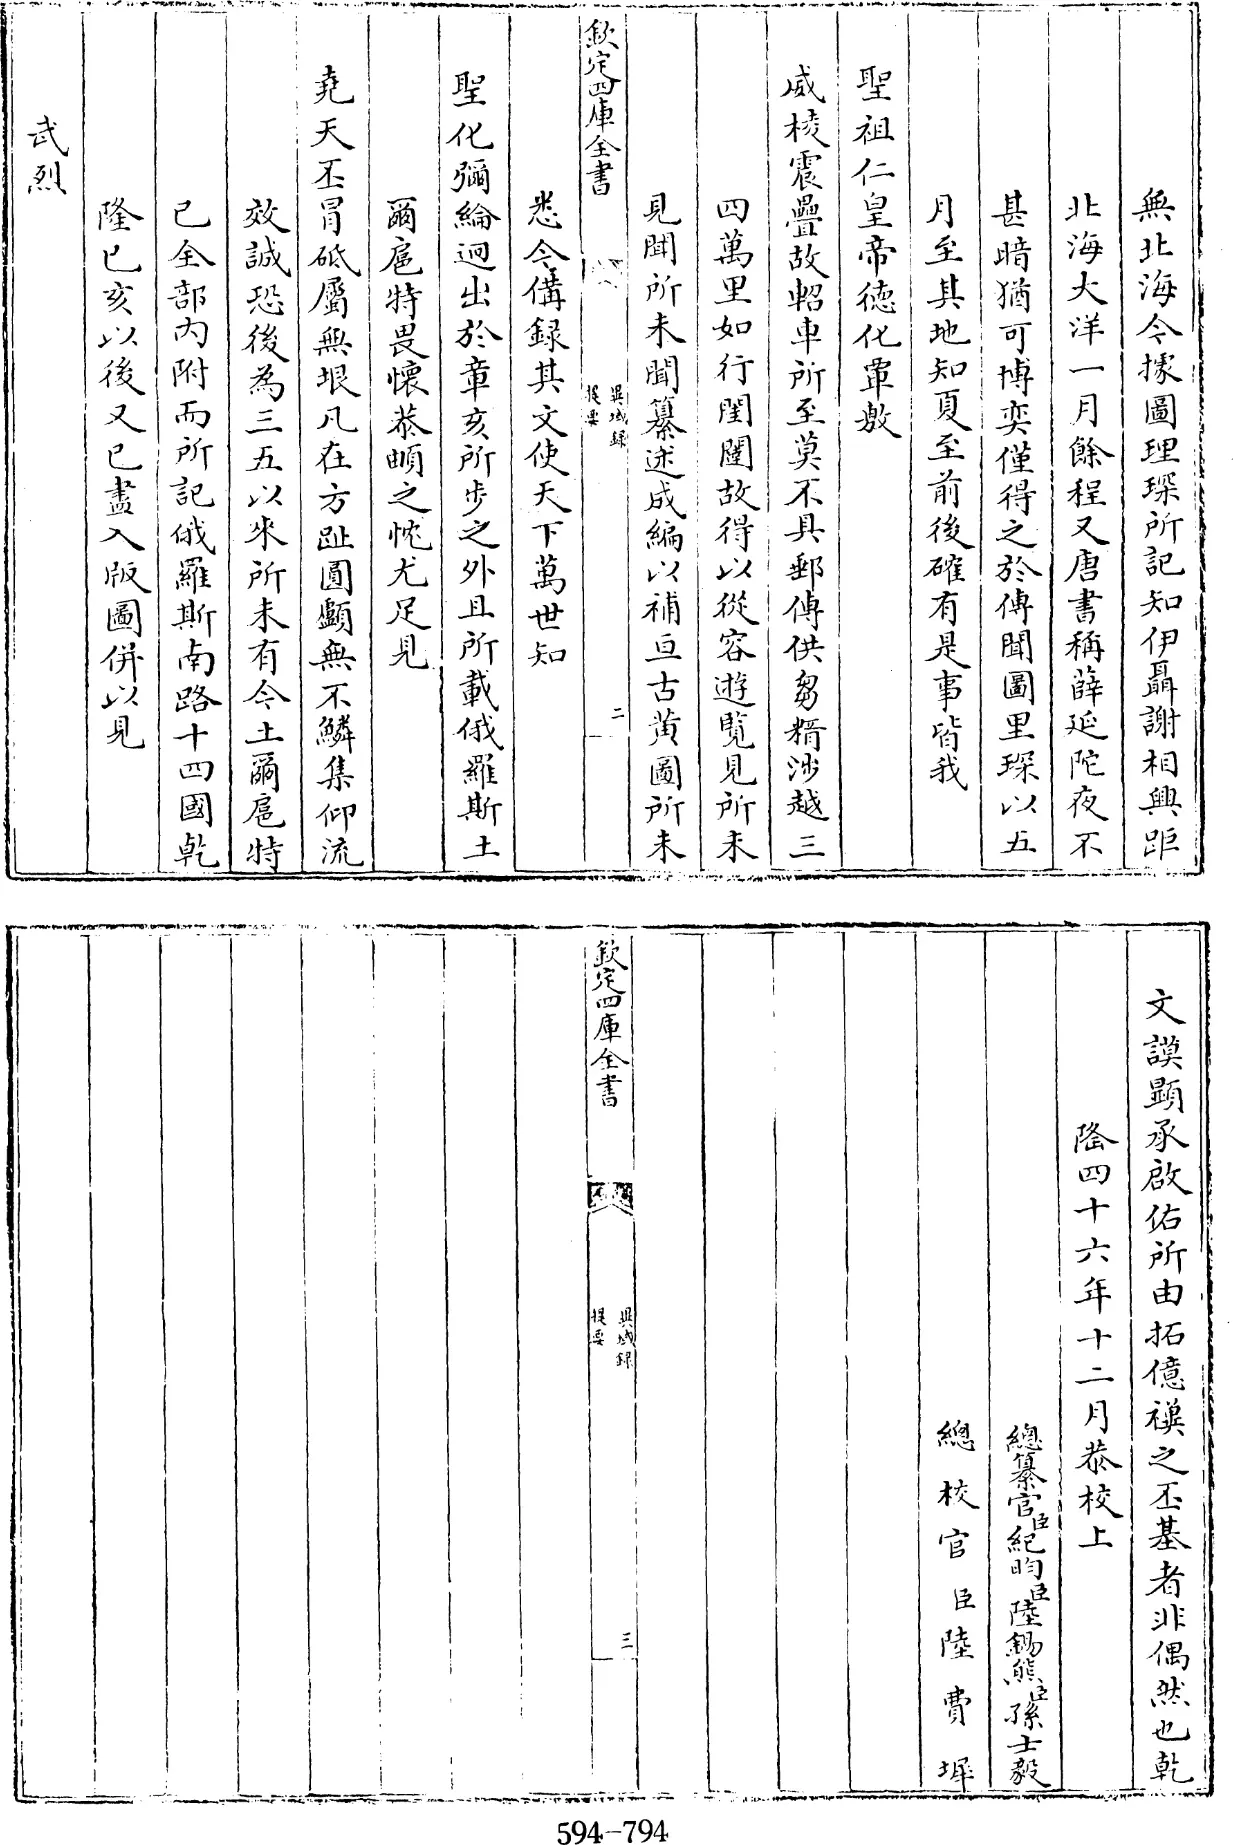 無北海今據圖理琛所記知伊聶謝相興距
北海大洋一月餘程又唐書稱薛延陀夜不
甚暗猶可博奕僅得之於傳聞圖里琛以五
月至其地知夏至前後確有是事皆我
聖祖仁皇帝德化覃敷
威棱震疊故軺車所至莫不具郵傳供芻糈涉越三
四萬里如行閨闥故得以從容遊覽見所未
見聞所未聞纂述成編以補亘古黄圖所未
欽定四庫全書
異域録
提要
二
悉今備録其文使天下萬世知
聖化彌綸迥出於章亥所步之外且所載俄羅斯土
爾扈特畏懷恭順之忱尤足見
堯天丕冒砥屬無垠凡在方趾圓顱無不鱗集仰流
效誠恐後為三五以來所未有今土爾扈特
已全部内附而所記俄羅斯南路十四國乾
隆己亥以後又已盡入版圖併以見
武烈
文謨顯承啟佑所由拓億禩之丕基者非偶然也乾
隆四十六年十二月恭校上
總纂官臣紀昀臣陸錫熊臣孫士毅
總校官臣陸費墀
欽定四庫全書
異域録
提要
三
594-794